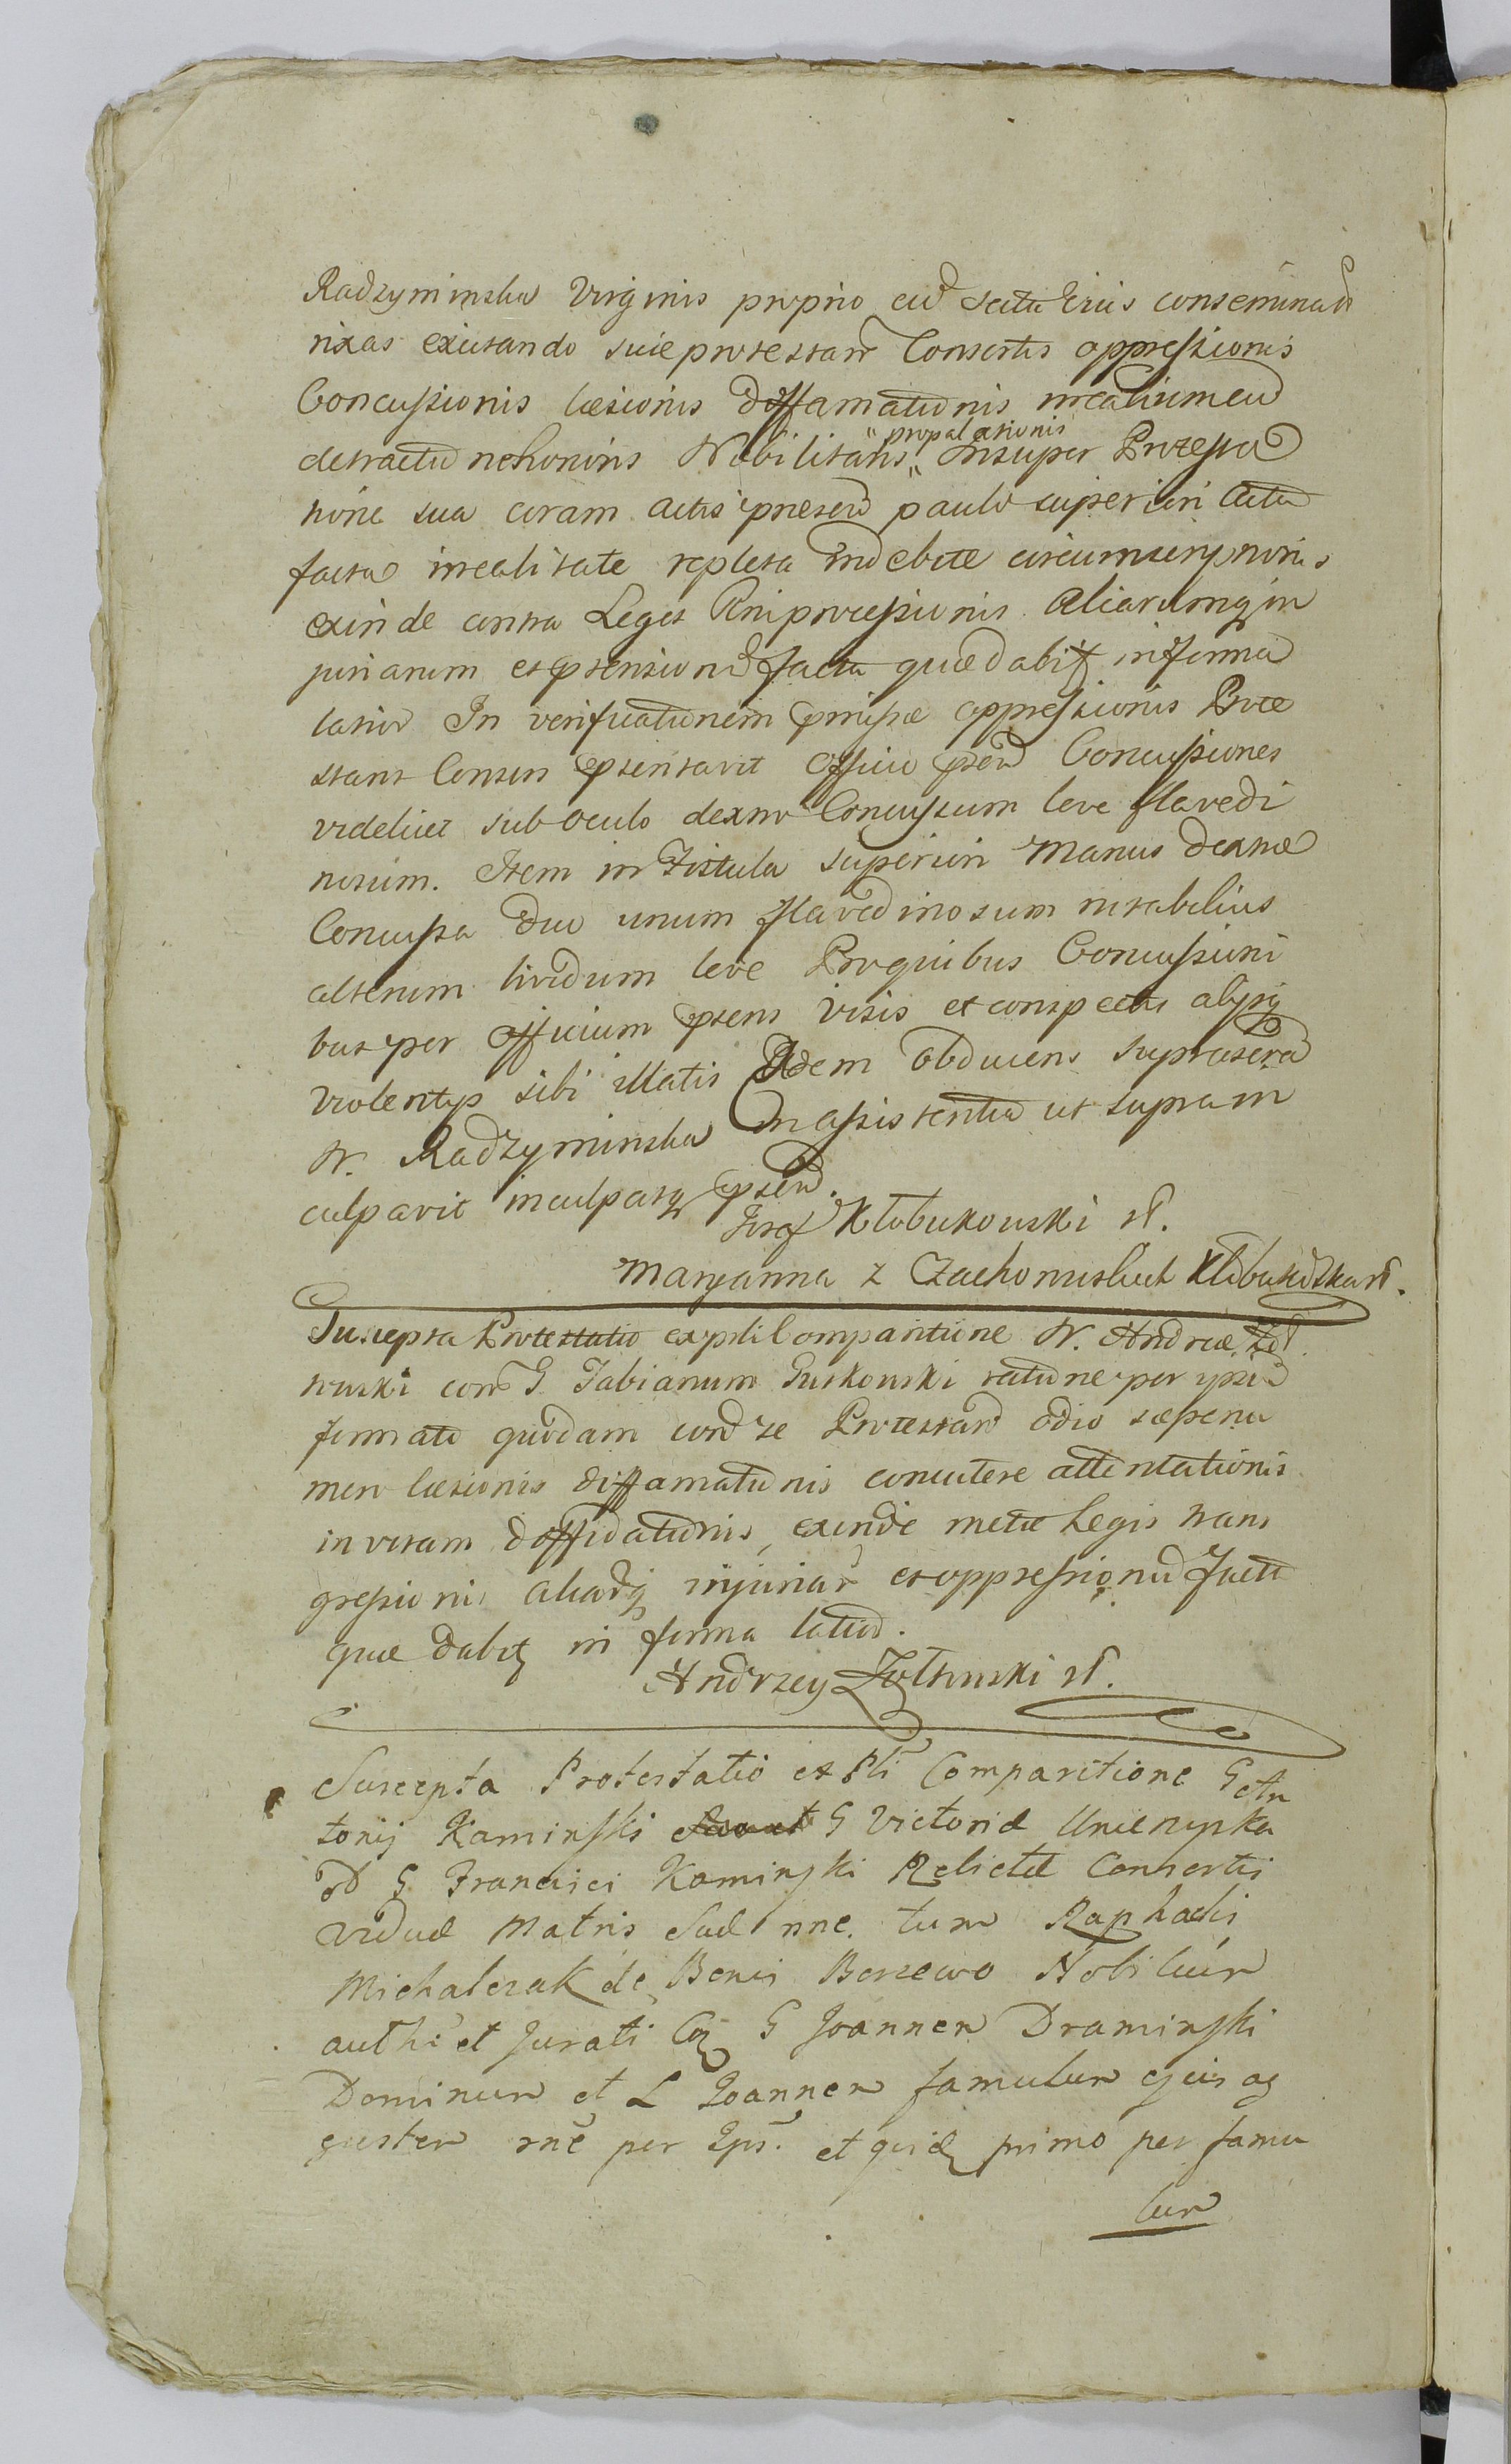 Radzyminska Virginis proprio eid scitu Ejus conseminad
rixas excitando suae protestan Consortis oppressionis
Concussionis laesionis diffamationis irrealiumeu
" propalationis
detractu nehonoris Nobilitatis " Insuper Protesta
tione sua coram actis praesen paulo superiori actu
facta irrealitate repleta Indebite circumscriptionis
exinde contra Leges Rni processionis Aliarumq in
juriarum et ptensionu facta quae dabit in forma
latior In verificationem pmissae oppressionis Prote
stans Consors psentavit Officio psen Concussiones
videlicet sub oculo dextro Concussum leve flavedi
nosum. Item in Fistula superiori Manus dextrae
Concussa duo unum flavedinosum notabilius
alterum lividum leve Pro quibus Concussioni
bus per officium psens Visis et conspectis alysq
violentys sibi illatis Idem obducens suprascra
N. Radzyminska In assistentia ut supra in
culpavit inculpatq psen.
Josef Kłobukowski st.
Maryanna z Czachorowskich Kłobukowska st.
Suscepta Protestatio ex psti Comparitione N. Andreae Żoł
towski con G Fabianum Gutkowski ratione per ipsu
formati quodam con se Protestan odio saepenu
mero laesionis diffamationis concutere attentationis
in vitam diffidationis, exinde metae Legis trans
gressionis aliarq injuriar et oppressionu facta
quae dabit in forma latior.
Andrzey Żołtowski st.
Suscepta Protestatio ex Psti Comparitione G An
tonij Kaminski G Victoriae Unierzyska
ol G Francisci Kaminski Relictae Consortis
viduae Matris Suae nne. tum Raphaelis
Michalczak de Bonis Borzewo Nobilium
authi et Jurati Coq G Joannem Draminski
Dominum et L Joannem famulum ejus ag
gestem rne per Ips. et quid primo per famu
lum